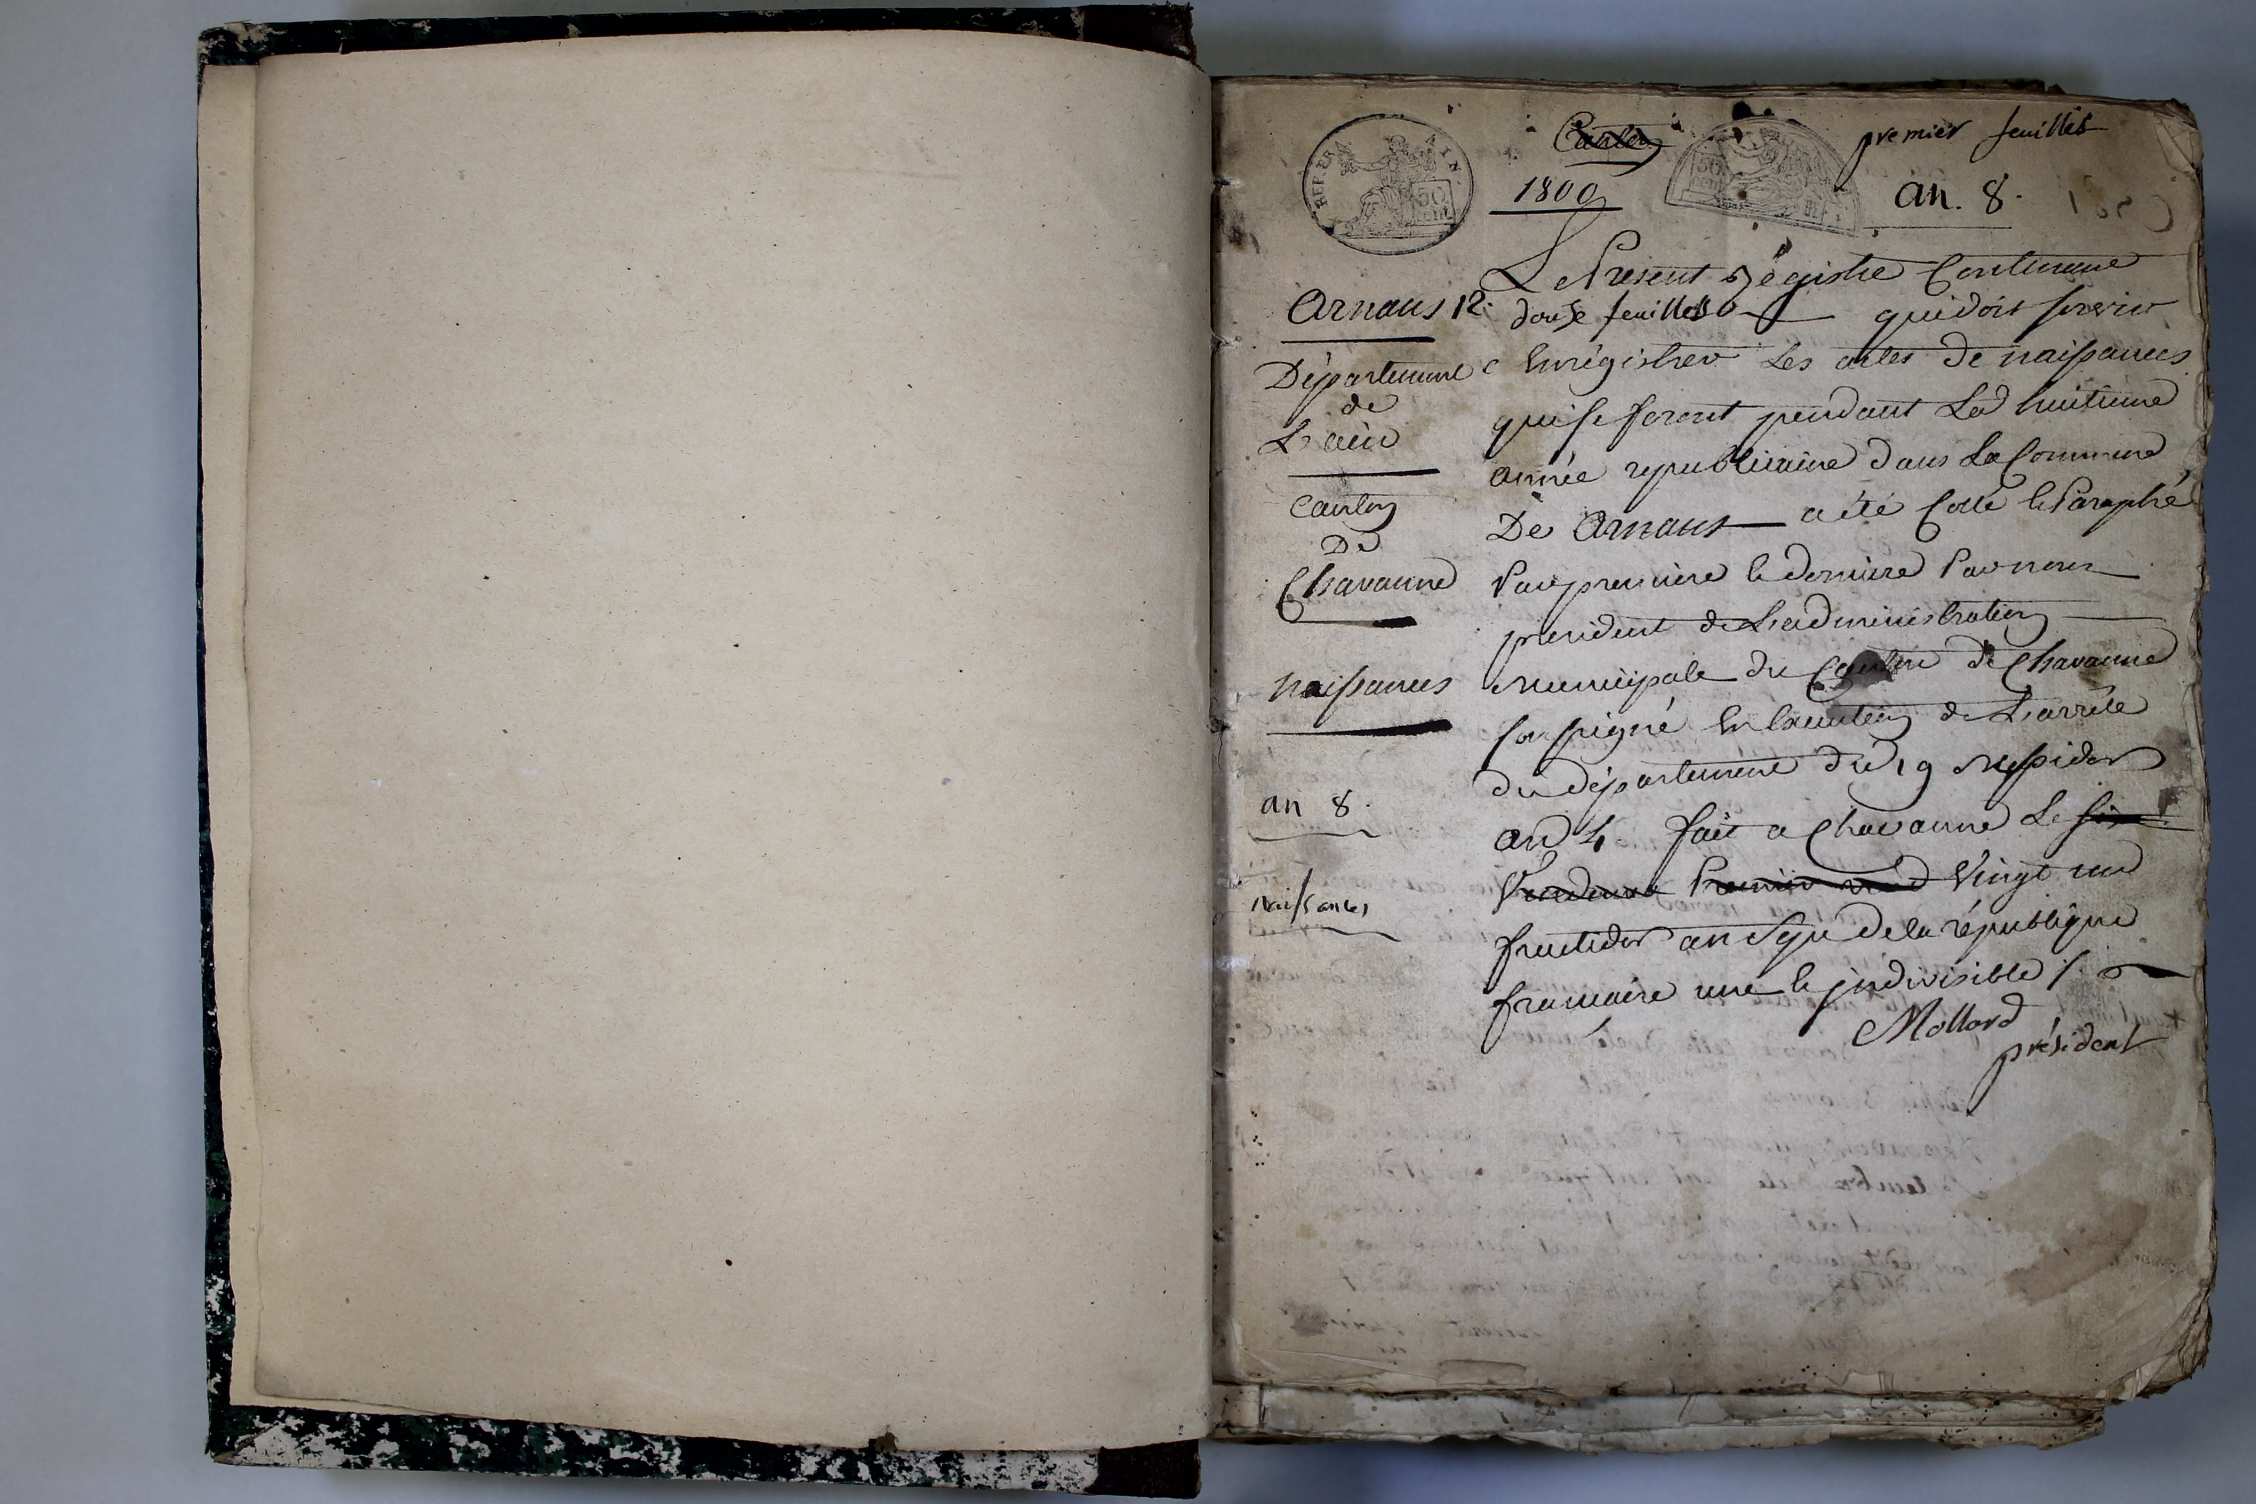 premier feuillet
1800
an. 8.
50
cent
50
Arnans 12.
Département
de
L'ain
Canton
De
Chavanne
naissances
an 8.
naissances
Le Present Régistre Contenant
douze feuillets qui doit servir
a Enrégistrer Les actes de naissances
qui se feront pendant La huitieme
année republicaine dans La Commune
De Arnans a été Cotté et Paraphé
Par premiere et derniere Par nous
president de L'administration
Municipale du Canton de Chavanne
soussigné En Execution de L'arrêté
du département du 19 Messidor
an 4 fait a Chavanne Le
Vingt un
fructidor an Sept de la république
francaise une et jndivisible /.
Mollard
président